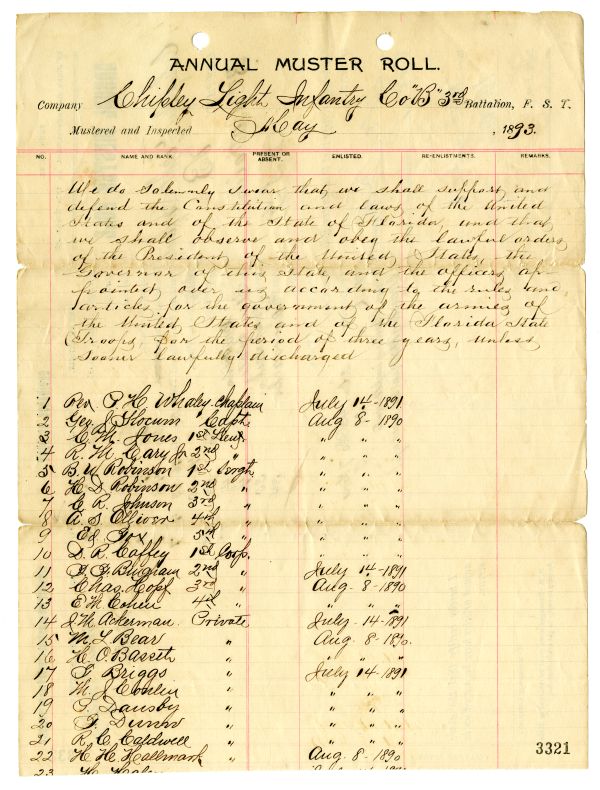 ANNUAL MUSTER ROLL.
Company Chipley Light Infantry Co "B" 3rd Battalion, F. S. T.
Mustered and Inspected May , 1893.
NO. NAME AND RANK. PRESENT OR ABSENT. ENLISTED. RE-ENLISTMENTS. REMARKS.
We do solemnly swear that we shall support and
defend the Constitution and laws of the United
States and of the State of Florida, and that
we shall observe and obey the lawful orders
of the President of the United States, the
Governor of this State and the officers ap-
pointed over us according to the rules and
articles for the government of the armies of
the United States and of the Florida State
Troops, for the period of three years, unless
sooner lawfully discharged
1 Rev P. H. Whaley Chaplain July 14-1891
2 Geo. J. Slocum Capt. Aug 8-1890
3 C. M. Jones 1st Lieut " " "
4 R. M. Cary Jr 2nd " " " "
5 B. W. Robinson 1st Sergt. " " "
6 H. D. Robinson 2nd " " " "
7 C. R. Johnson 3rd " " " "
8 A. S. Oliver 4th " " " "
9 Ed Fox 5th " " " "
10 D. R. Coffey 1st Corp. " " "
11 Bingham 2nd " July 14-1891
12 Chas. Hopf 3rd " Aug. 8-1890
13 E M Cohen 4th " " " "
14 J. M. Ackerman Private July 14-1891
15 M. L. Bear " Aug. 8-1890.
16 H. O. Bassett " " " "
17 Briggs " July 14-1891
18 M. J. Conlin " " " "
19 Dansby " " " "
20 Dunn " " " "
21 R. C. Caldwell " " " "
22 H. H. Hallmark " Aug. 8-1890
23
3321